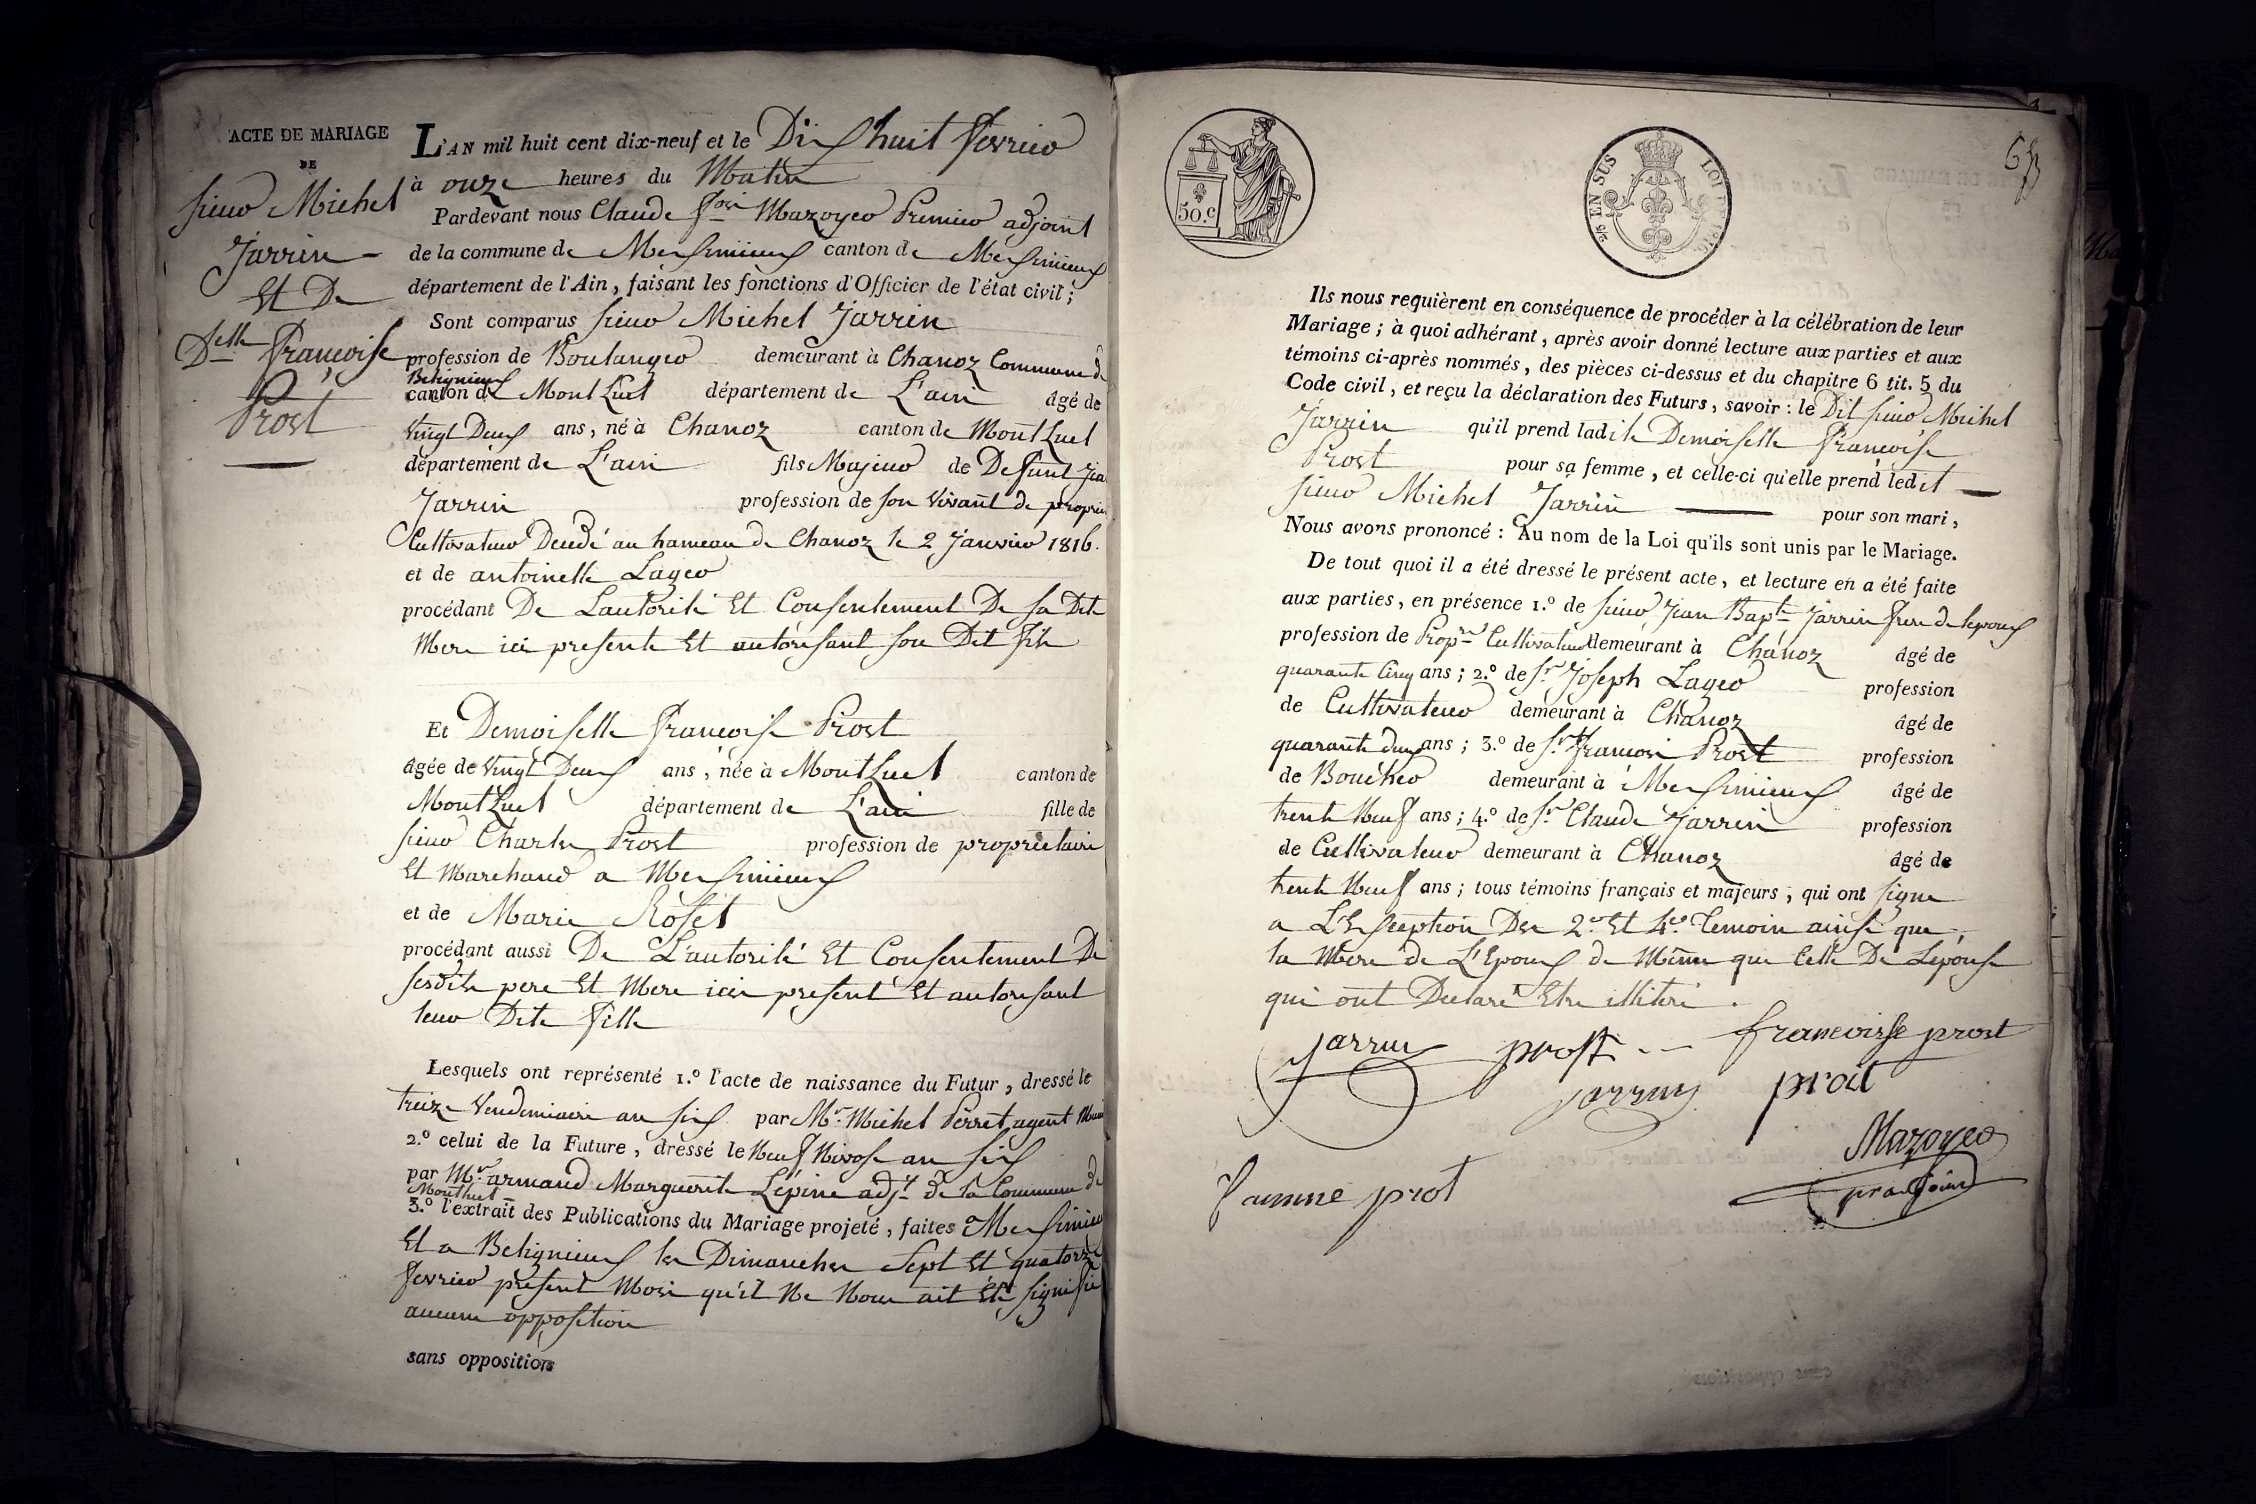 ACTE DE MARIAGE
DE
sieur Michel
Jarrin
Et De
Delle françoise
Prost
L'AN mil huit cent dix-neuf et le Dix huit fevrier
à onze heures du Matin
Pardevant nous Claude fois Mazoyer Premier adjoint
de la commune de Meximieux canton de Meximieux
département de l'Ain, faisant les fonctions d'Officier de l'état civil;
Sont comparus sieur Michel Jarrin
profession de Boulanger demeurant à Chanoz Commune de
Beligneux
canton de MontLuel département de L'ain âgé de
vingt Deux ans, né à Chanoz canton de MontLuel
département de L'ain fils Majeur de Defunt
Jarrin profession de son vivant de
Cultivateur Decedé au hameau de Chanoz le 2 Janvier 1816.
et de antoinette Lager
procédant De Lautorité Et Consentement De sa Dite
Mere ici presente Et autorisant son Dit fils
Et Demoiselle françoise Prost
âgée de vingt Deux ans, née à MontLuel canton de
MontLuel département de L'ain fille de
sieur Charles Prost profession de proprietaire
Et Marchand a Meximieux
et de Marie Roset
procédant aussi De L'autorité Et Consentement De
sesdits pere Et Mere ici present Et autorisant
leur Dite fille
Lesquels ont représenté 1.º l'acte de naissance du Futur, dressé le
treize Vendemiaire an six par Mr. Michel Perret agent
2.º celui de la Future, dressé le Neuf Nivose an six
par Mr. armand Marguerite Lépine adjt de la Commune de
Montluel
3.º l'extrait des Publications du Mariage projeté, faites a Meximieux
Et a Beligneux les Dimanches Sept Et quatorze
fevrier present Mois qu'il Ne Nous ait Eté signifié
aucune opposition
sans opposition
50.c
2/5 EN SUS
LOI DE 1816
63
Ils nous requièrent en conséquence de procéder à la célébration de leur
Mariage; à quoi adhérant, après avoir donné lecture aux parties et aux
témoins ci-après nommés, des pièces ci-dessus et du chapitre 6 tit. 5 du
Code civil, et reçu la déclaration des Futurs, savoir : le Dit sieur Michel
Jarrin qu'il prend ladite Demoiselle françoise
Prost pour sa femme, et celle-ci qu'elle prend ledit
sieur Michel Jarrin pour son mari,
Nous avons prononcé : Au nom de la Loi qu'ils sont unis par le Mariage.
De tout quoi il a été dressé le présent acte, et lecture en a été faite
aux parties, en présence 1.º de sieur Jean Bapte Jarrin frere de lepoux
profession de Propre Cultivateur demeurant à Chanoz âgé de
quarante Cinq ans; 2.º de Sr Joseph Lager profession
de Cultivateur demeurant à Chanoz âgé de
quarante deux ans; 3.º de Sr françois Prost profession
de Boucher demeurant à Meximieux âgé de
trente Neuf ans; 4.º de Sr Claude Jarrin profession
de Cultivateur demeurant à Chanoz âgé de
trente Neuf ans; tous témoins français et majeurs, qui ont signe
a L'Exception Des 2e Et 4e temoin ainsi que
la Mere de L'Epoux de Même que Celle De Lepouse
qui ont Declaré Etre illitéré.
Jarrin prost francoisse prost
jarrin prost
Mazoyer
pr adjoint
prot